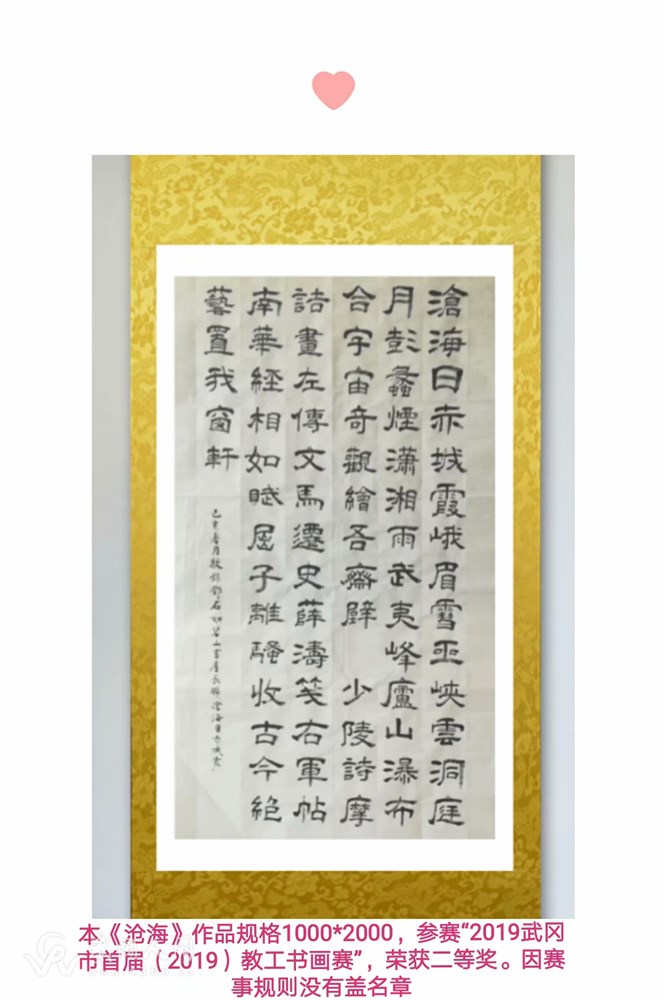 滄海日赤城霞峨眉雪巫峽雲洞庭
月彭蠡煙瀟湘雨武夷峰廬山瀑布
合宇宙奇觀繪吾齋壁 少陵詩摩
詰畫左傳文馬遷史薛濤箋右軍帖
南華經相如賦屈子離騷收古今絕
藝置我窗軒
己亥春月敬錄鄧石如碧山書屋長聯滄海日赤城霞
本《沧海》作品规格1000*2000，参赛“2019武冈
市首届（2019）教工书画赛”，荣获二等奖。因赛
事规则没有盖名章